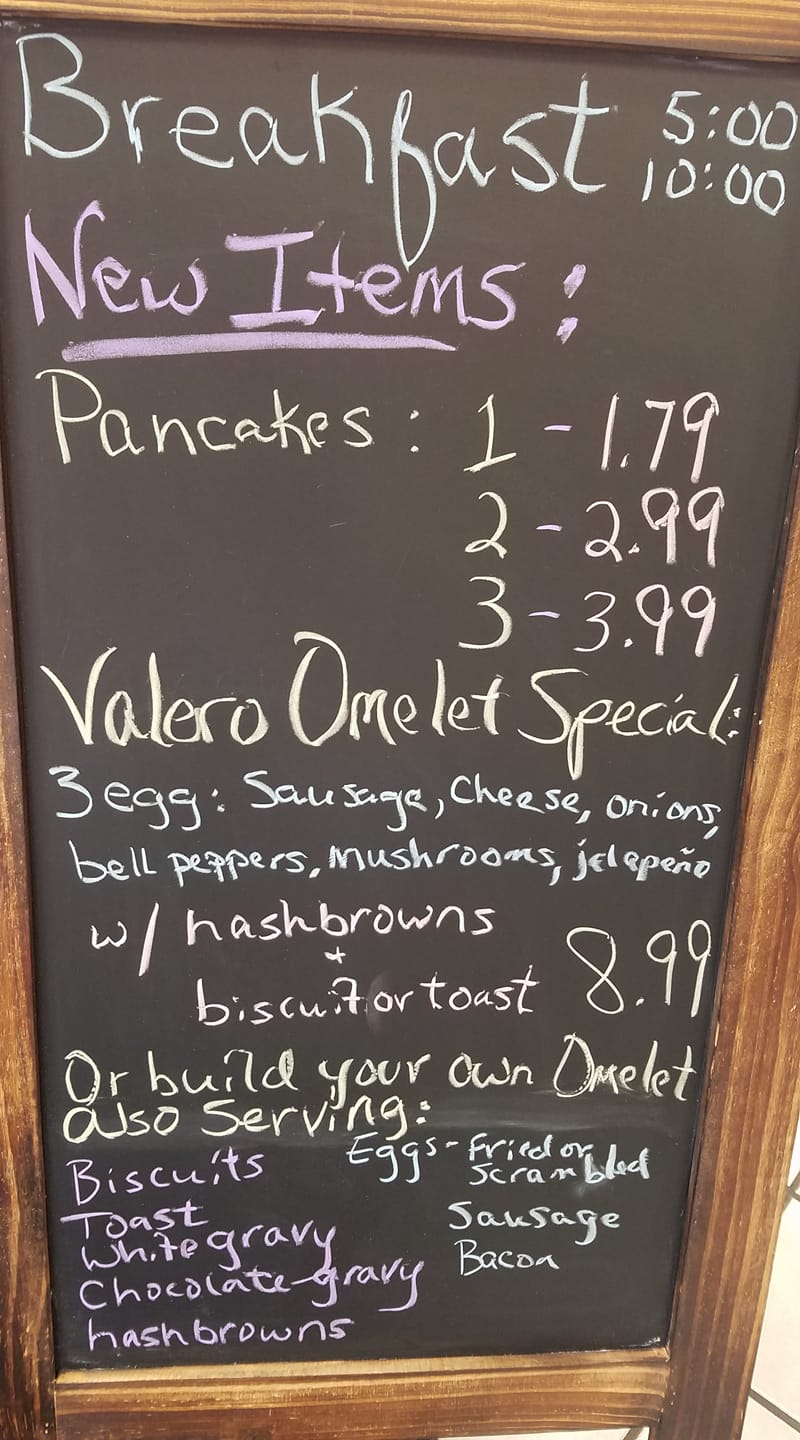 Breakfast 5:00
10:00
New Items:
Pancakes: 1 - 1.79
2 - 2.99
3 - 3.99
Valero Omelet Special:
3 egg: Sausage, Cheese, onions,
bell peppers, mushrooms, jelapeño
w/ hashbrowns
+
biscuit or toast 8.99
Or build your own Omelet
also Serving:
Biscuits
Toast
White gravy
Chocolate gravy
hashbrowns
Eggs - fried or
scrambled
Sausage
Bacon